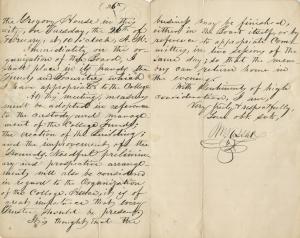 (26)
the Gregory House in this
city, on Tuesday, the 26th of
February, at 10 o'clock A.M.
Immediately on the or-
ganization of the Board, I
shall place in its hands the
Funds and Securities which
have been appropriated to the College
At this meeting measures
must be adopted in reference
to the custody and manage
ment of the College Funds,
the erection of the Buildings
and the improvement of the
Grounds. Needful prelimin
ary and prospective arrange
ments will also be considered
in regard to the Organization
of the College. Hence it is of
great importance that every
Trustee should be present.
It is thought that the
business may be finished,
either in the Board itself, or by
reference to appropriate Com-
mittees, in two sessions of the
same day; so that the mem
bers can return home in
the evening.
With Sentiments of high
consideration, I am,
Very truly & respectfully,
Your obt. sevt,